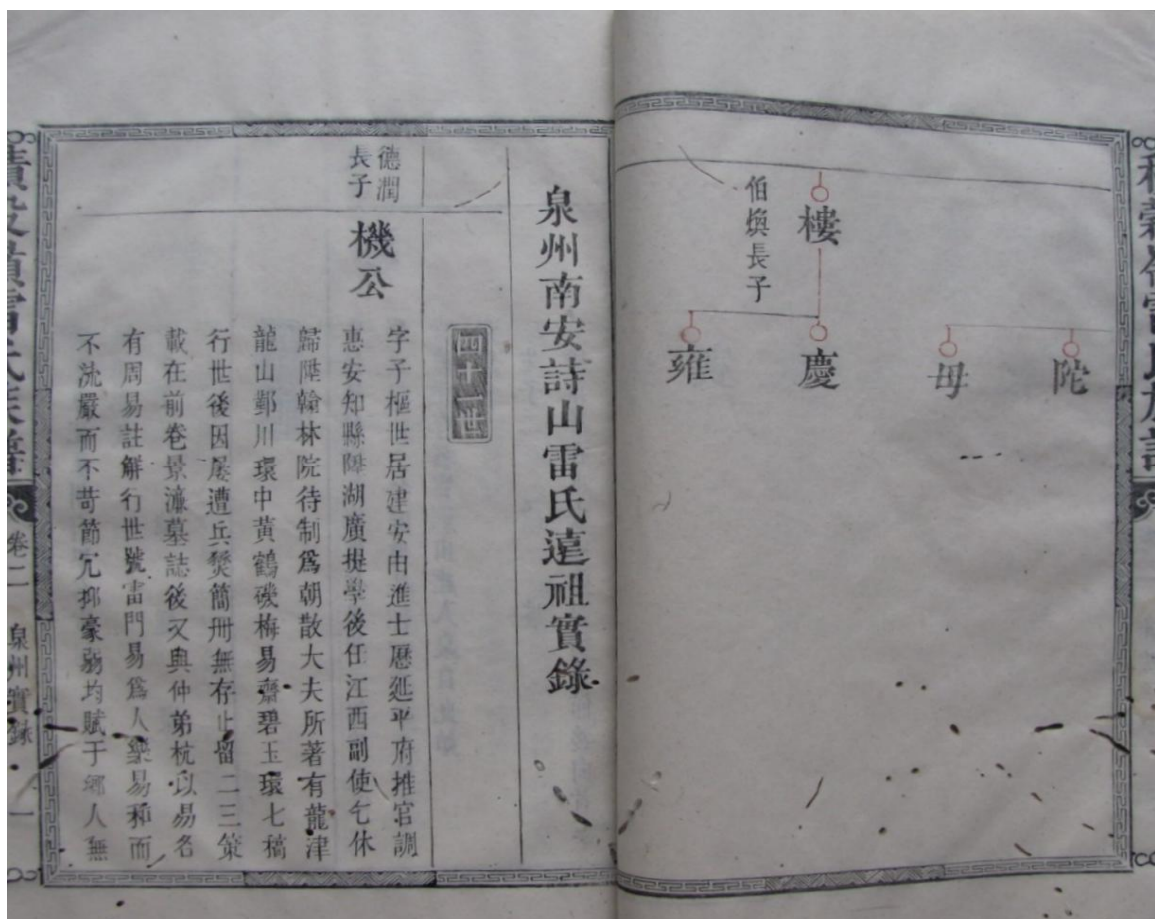 樓
伯煥長子
陀
母
慶
雍
泉州南安詩山雷氏遠祖實錄
四十世
德潤
長子
機公
字子樞世居建安由進士歷延平府推官調
惠安知縣陞湖廣提學後任江西副使乞休
歸陞翰林院待制爲朝散大夫所著有龍津
龍山鄞川環中黃鶴磯梅易齋碧玉環七稿
行世後因屡遭兵燹簡冊無存止留二三策
載在前卷景濂墓誌後又與仲弟杭以易名
有周易註解行世號雷門易爲人樂易和而
不流嚴而不苛節冗抑豪弱均賦于鄉人無
雷氏族譜
卷二
泉州實錄
一